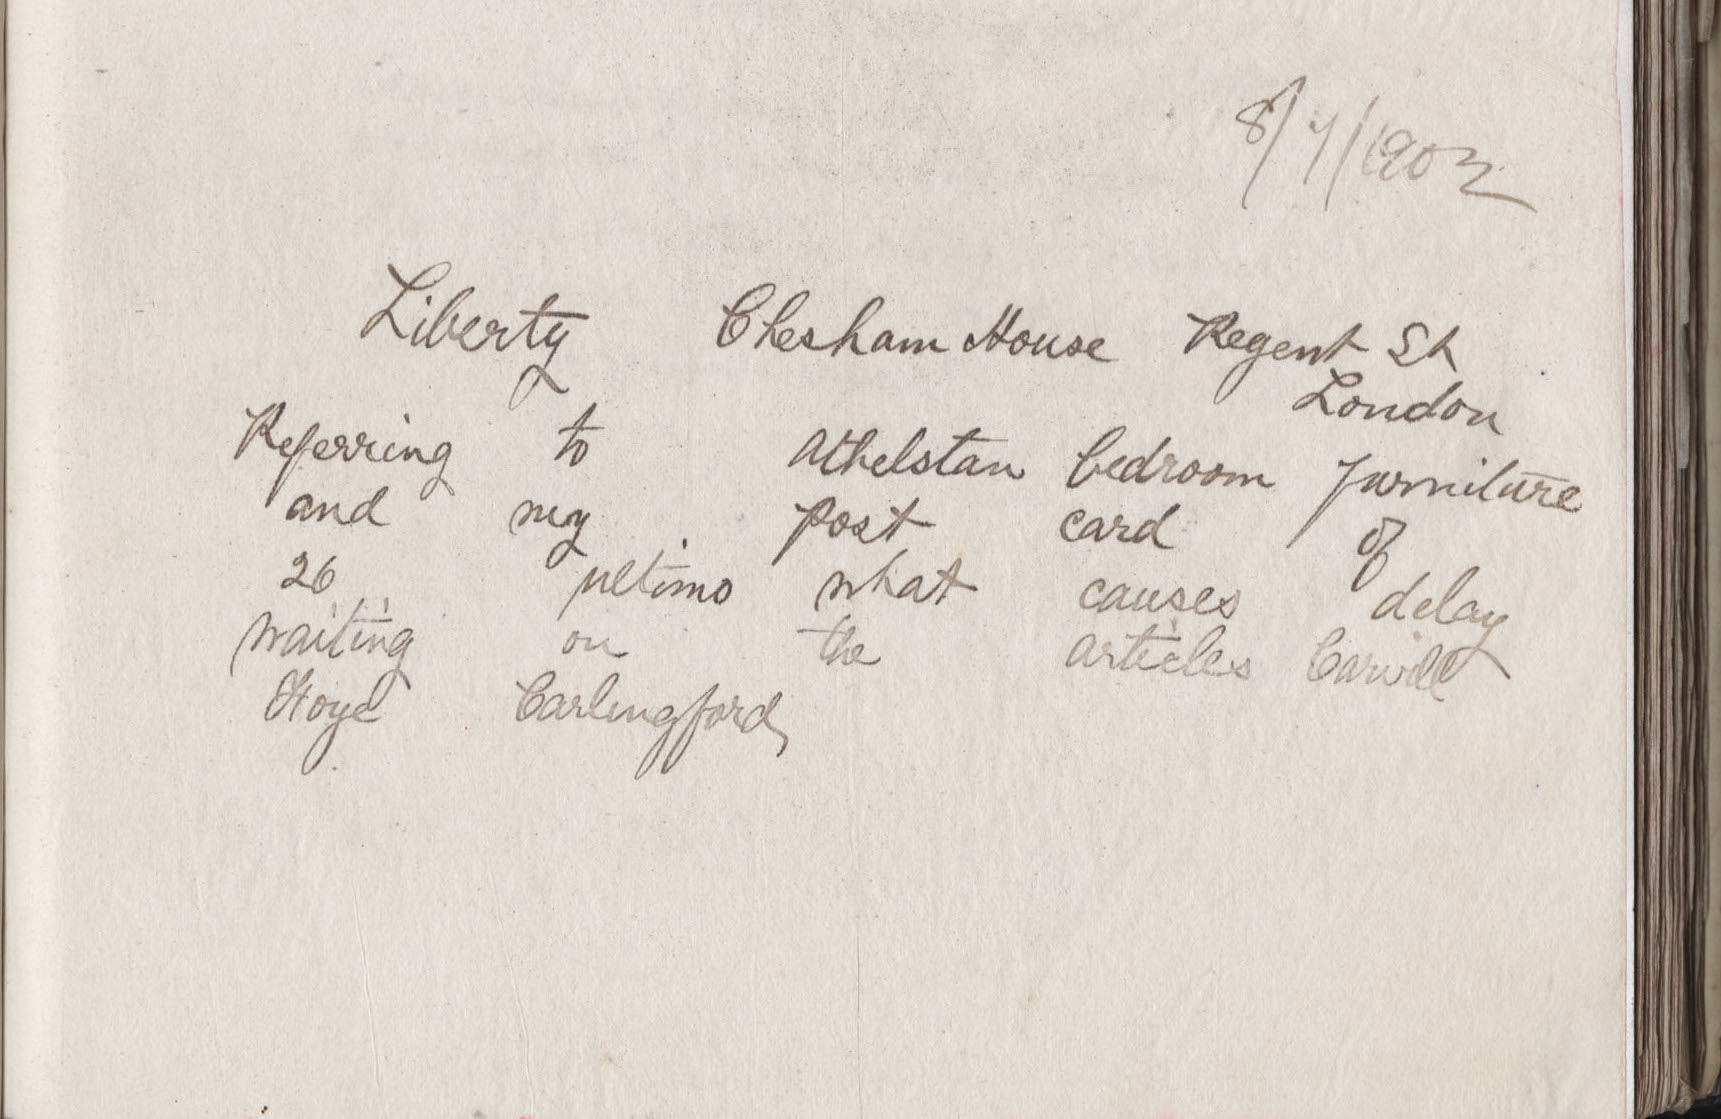 8/7/1902
Liberty Chesham House Regent St
London
Referring to Athelstan bedroom furniture
and my post card of
26 ultimo what causes delay
waiting on the articles Carvill
Hoye Carlingford